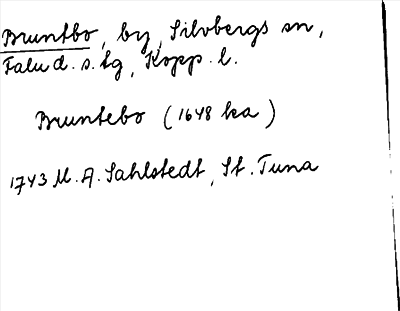 Bruntbo, by, Silvbergs sn,
Falu d. s. tg, Kopp. l.
Bruntebo (1648 ka)
1743 M. A. Sahlstedt, St. Tuna